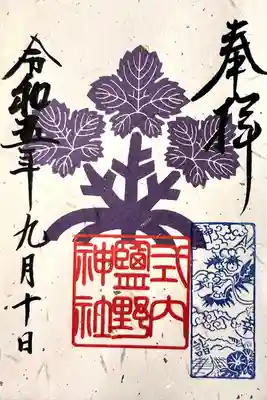 奉拝
式内
鹽野
神社
令和五年九月十日